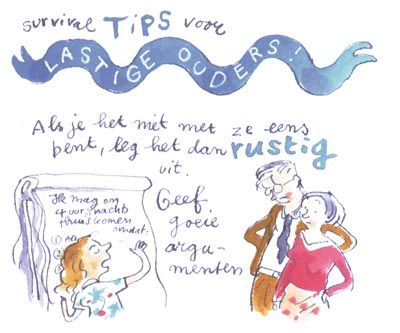 survival TIPS voor
LASTIGE OUDERS!
Als je het niet met ze eens
bent, leg het dan rustig
uit.
Geef
goeie
argu-
menten
Ik mag om
4 uur 's nachts
thuiskomen
omdat:
①